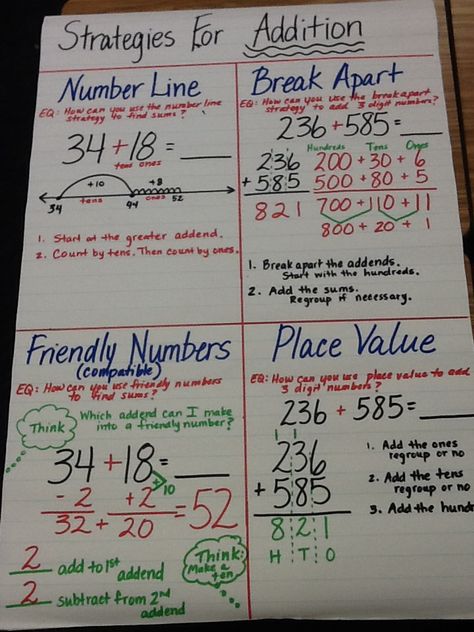 Strategies For Addition
Number Line
EQ: How can you use the number line
strategy to find sums?
34 + 18 = ____
tens ones
+10 +8
34 tens 44 ones 52
1. Start at the greater addend.
2. Count by tens. Then count by ones.
Break Apart
EQ: How can you use the break apart
strategy to add 3 digit numbers?
236 + 585 = ____
Hundreds Tens Ones
236 200 + 30 + 6
+ 585 500 + 80 + 5
821 700 + 110 + 11
800 + 20 + 1
1. Break apart the addends.
Start with the hundreds.
2. Add the sums.
Regroup if necessary.
Friendly Numbers
(compatible)
EQ: How can you use friendly numbers
to find sums?
Think
Which addend can I make
into a friendly number?
34 + 18 = ____
+10
- 2 + 2
32 + 20 = 52
2 add to 1st
addend
2 subtract from 2nd
addend
Think:
Make a
ten
Place Value
EQ: How can you use place value to add
3 digit numbers?
236 + 585 = ____
1 1
236
+ 585
8 2 1
H T O
1. Add the ones
regroup or no
2. Add the tens
regroup or no
3. Add the hund